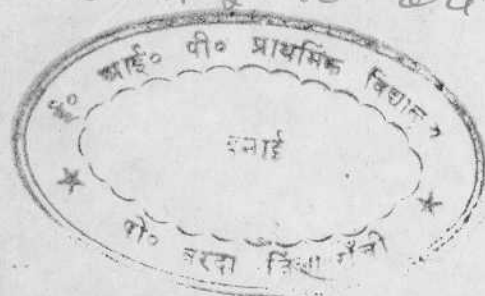 ई० आई० पी० प्राथमिक विद्यालय
रनाई
पो० बरदा जिला राँची